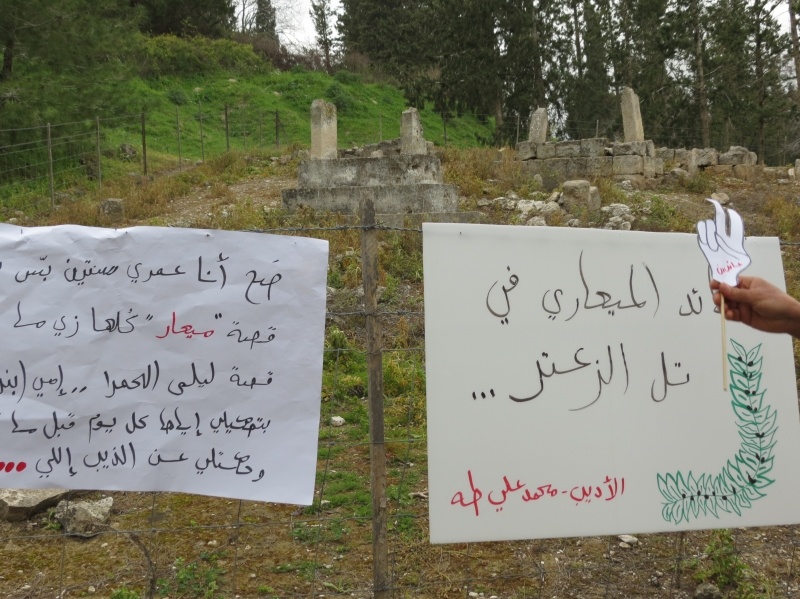 صَح أنا عمري سنتين بَسّ
قصة "ميعار" كُلها زي ما
قصة ليلى الحمرا .. إمي
بتحكيلي إياها كل يوم قبل ما
وحكتلي عن الذيب إللي ...
ئد الميعاري في
تل الزعتر ...
الأديب - محمد علي طه